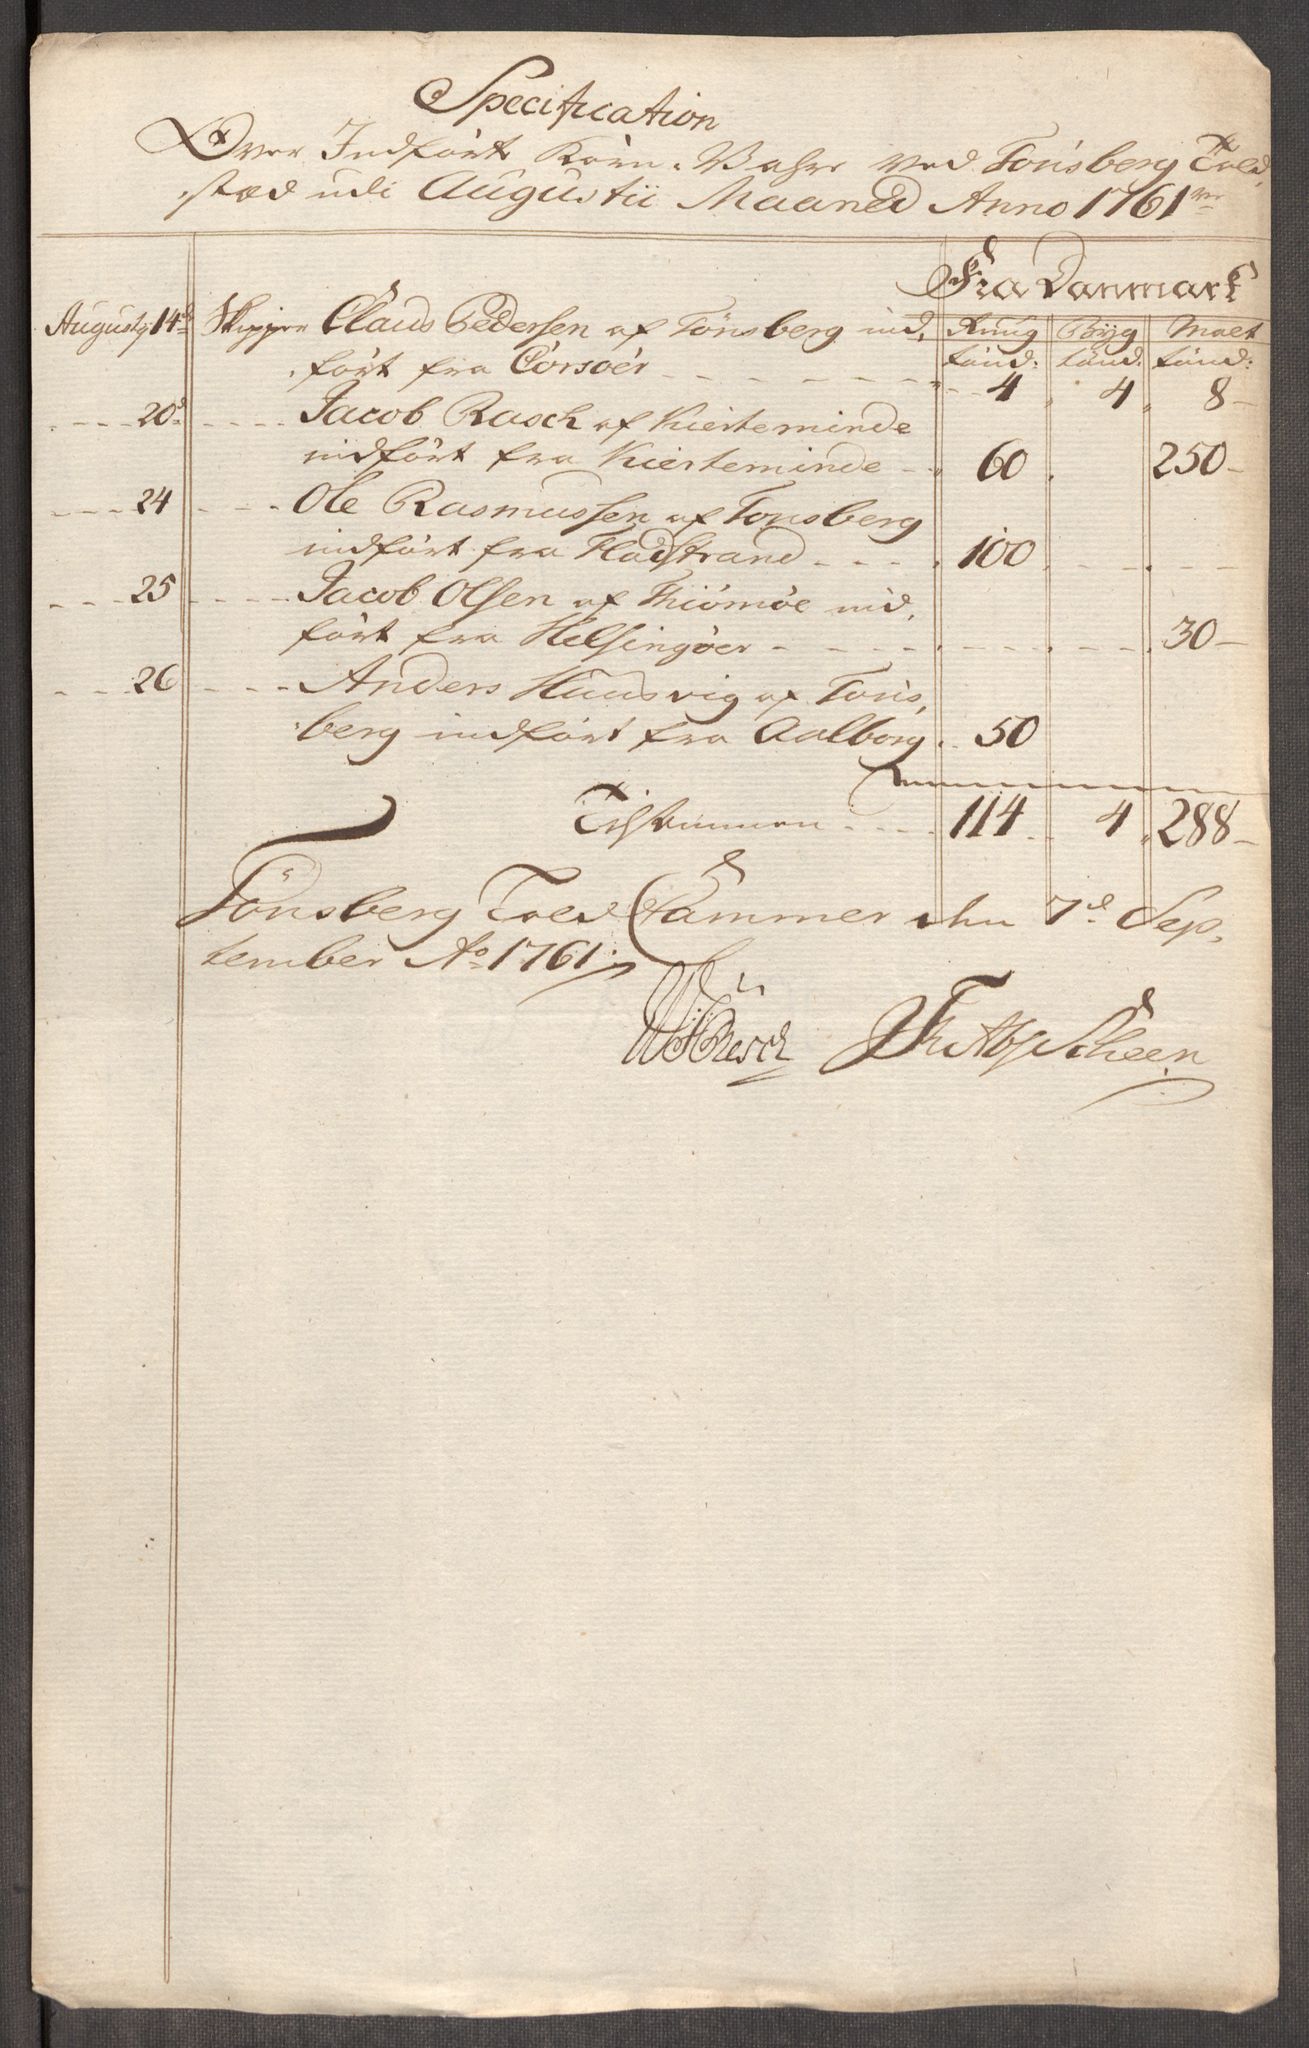 Specification
Over Indført Korn-Vahre ved Tønsberg Told,
stæd udi Augustii Maaned Anno 1761
Fra Danmark
Augusty 14d Skipper Claus Pedersen af Tönsberg ind, Rug Byg Malt
ført fra Corsöer tönd: tönd: tönd:
4 4 8
20d Jacob Rasch af Kierteminde
indført fra Kierteminde 60 250
24 Ole Rasmussen af Tonsberg
indført fra Fladstrand 100
25 Jacob Olsen af Thiömöe ind,
ført fra Helsingöer 30
26 Anders Huusvig af Töns,
berg indført fra Aalborg 50
Tilsammen 114 4 288
Tönsberg Told Cammer den 7d Sep,
tember Ao 1761
Scheen